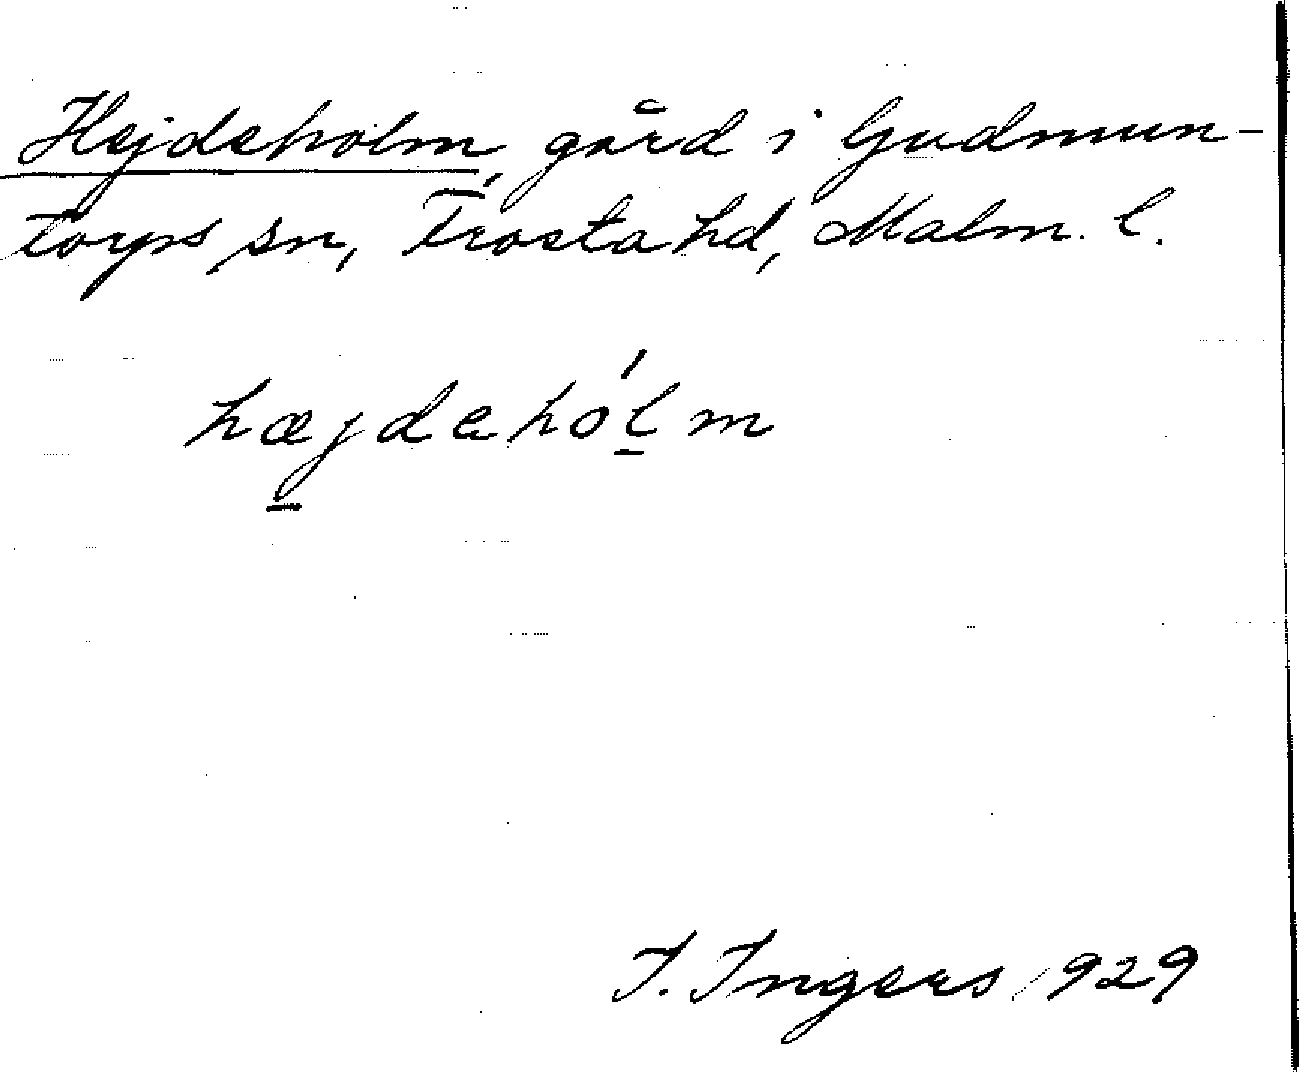 Hejdeholm, gård i Gudmun-
torps sn, Frosta hd, Malm. l.
hæjdehól̲m
I. Ingers 1929